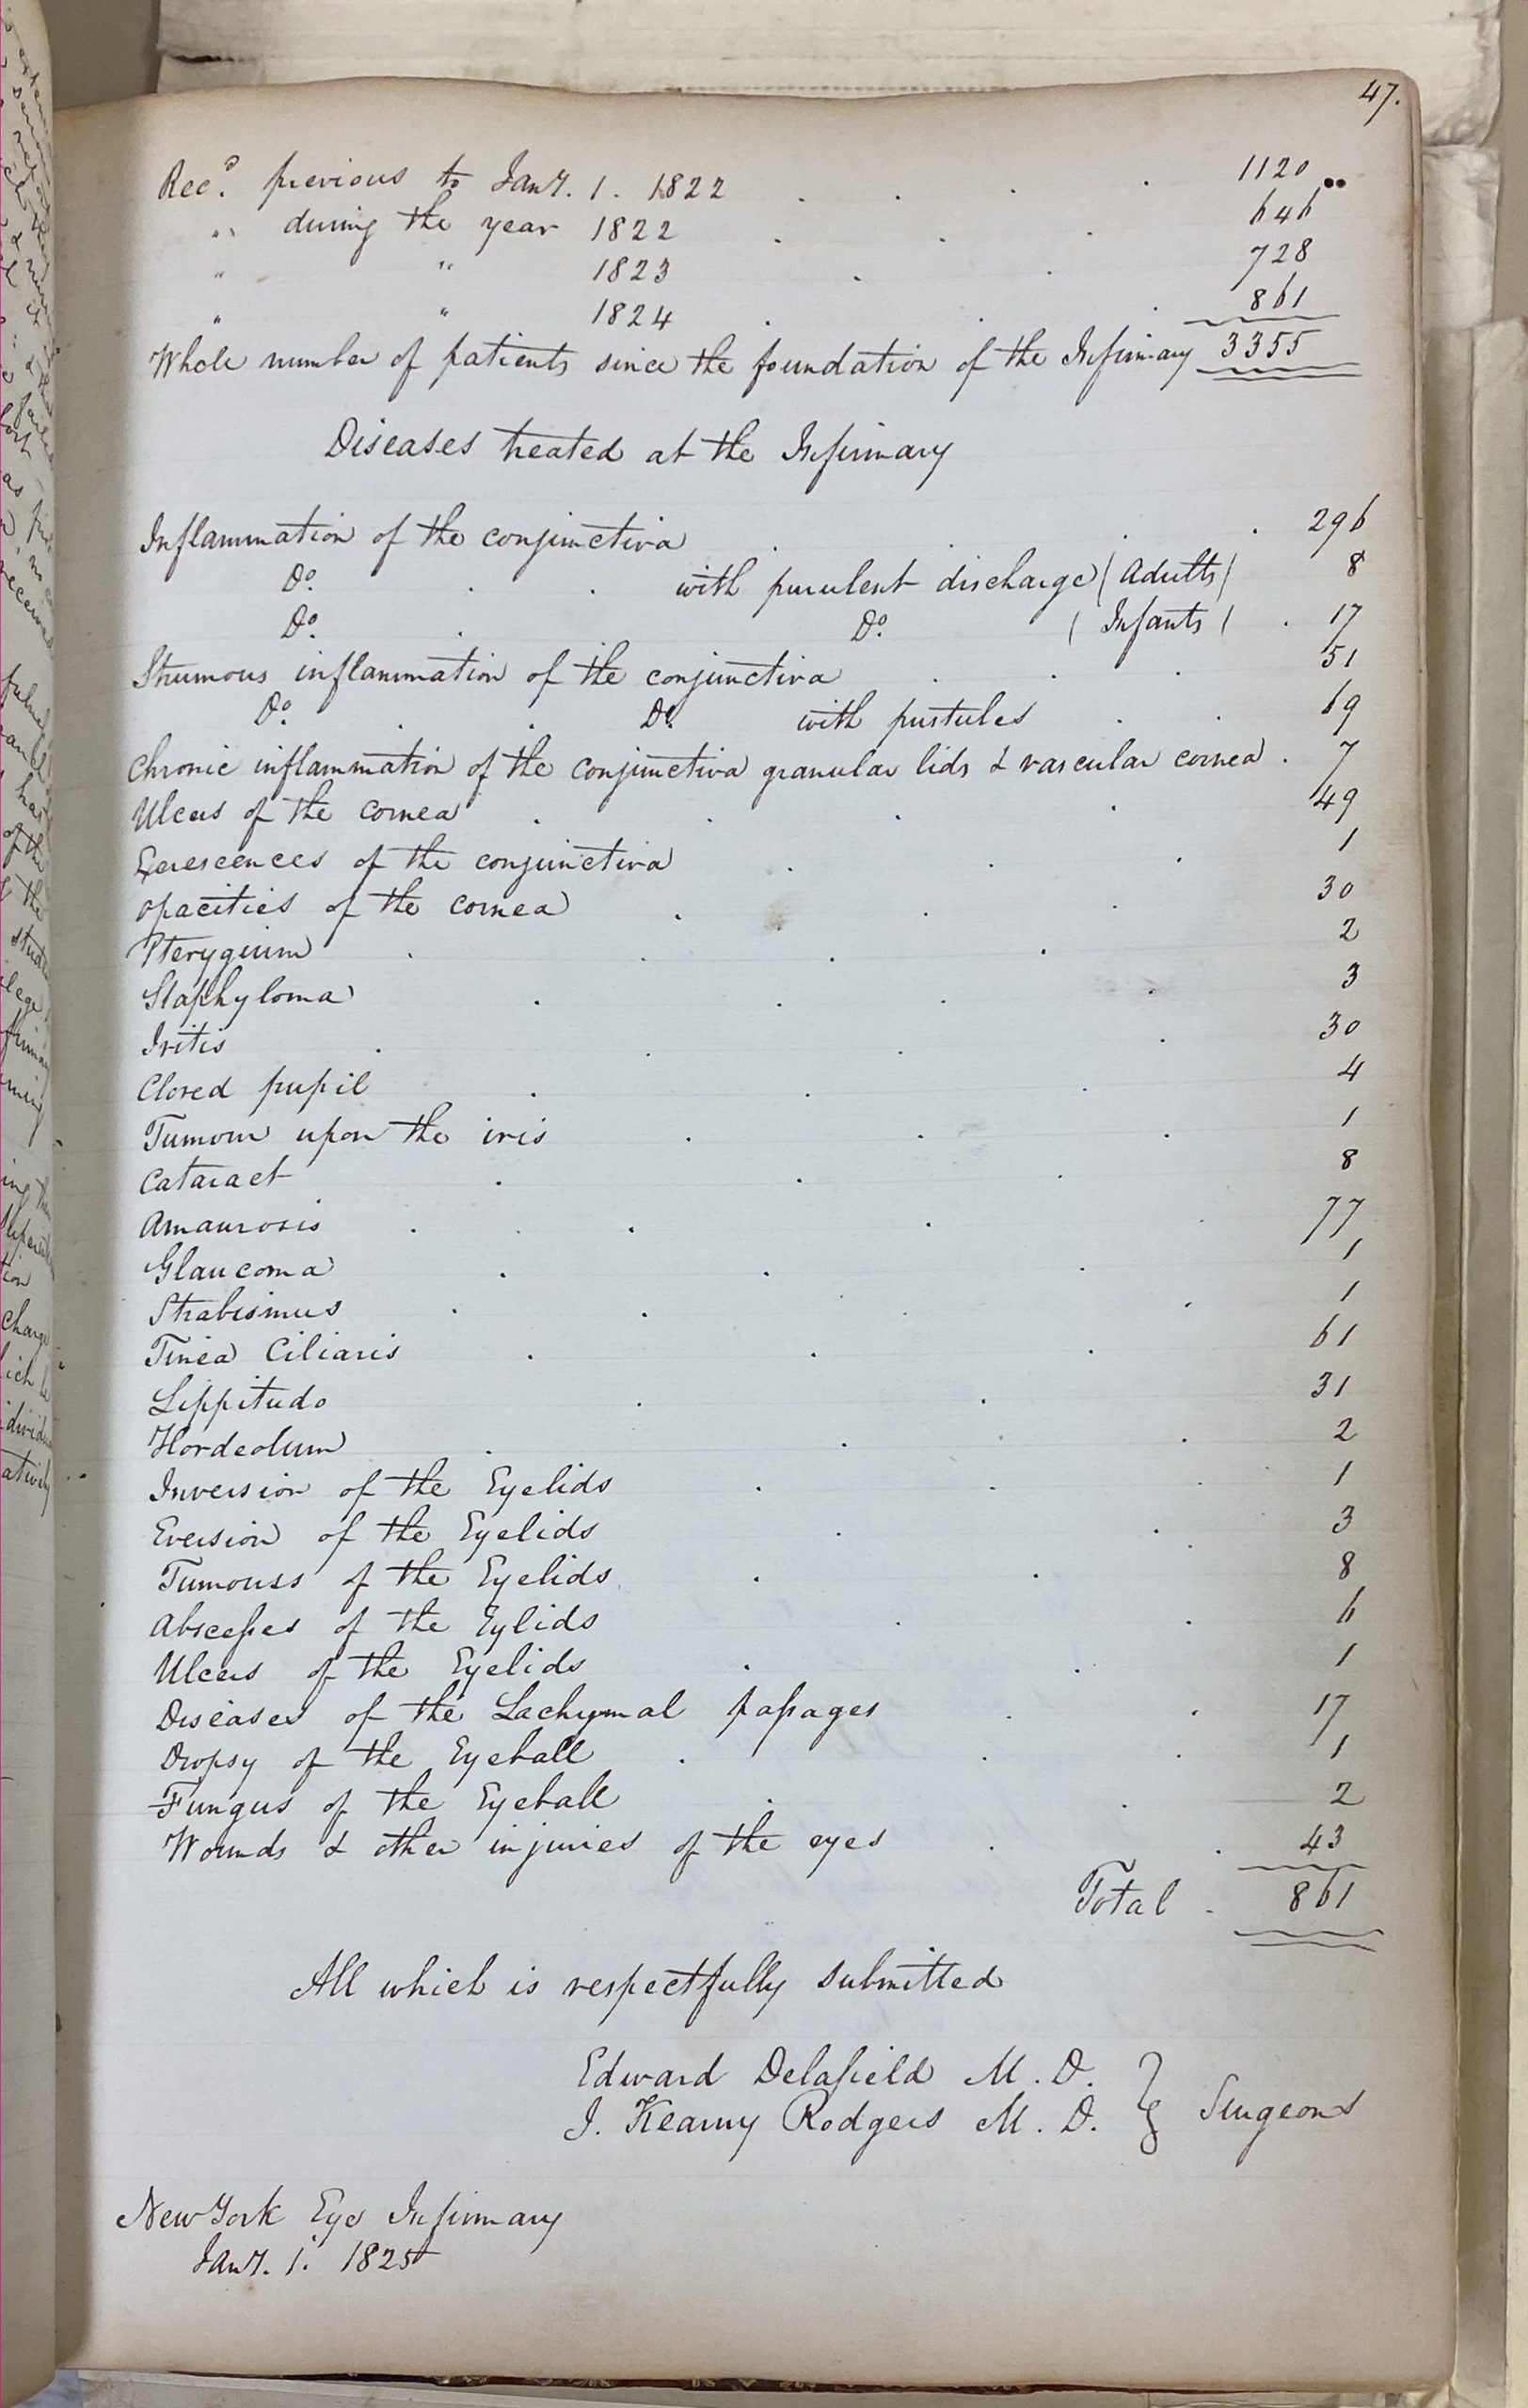 47.
Recd. previous to Jany. 1. 1822 . . . . 1120
" during the year 1822 . . . 646
" " 1823 . . 728
" " 1824 . . . 861
Whole number of patients since the foundation of the Infirmary 3355
Diseases treated at the Infirmary
Inflammation of the conjunctiva . . . 296
Do. . . with purulent discharge (Adults) 8
Do. . Do. (Infants) . 17
Strumous inflammation of the conjunctiva . . . 51
Do. . . Do. with pustules . . 69
Chronic inflammation of the conjunctiva granular lids & vascular cornea . 7
Ulcers of the cornea . . . . 49
Excrescences of the conjunctiva . . . 1
Opacities of the cornea . . . 30
Pterygium . . . . 2
Staphyloma . . . . 3
Iritis . . . . 30
Closed pupil . . . 4
Tumour upon the iris . . . 1
Cataract . . . 8
Amaurosis . . . . 77
Glaucoma . . . 1
Strabismus . . . . 1
Tinea Ciliaris . . . 61
Lippitudo . . 31
Hordeolum . . . 2
Inversion of the Eyelids . . . 1
Eversion of the Eyelids . . 3
Tumours of the Eyelids . . 8
Abscesses of the Eylids . . 6
Ulcers of the Eyelids . . 1
Diseases of the Lachymal passages . . 17
Dropsy of the Eyeball . . . 1
Fungus of the Eyeball . . 2
Wounds & other injuries of the eyes . . 43
Total . 861
All which is respectfully submitted
Edward Delafield M. D.
J. Kearny Rodgers M. D. } Surgeons
New York Eye Infirmary
Jany. 1. 1825